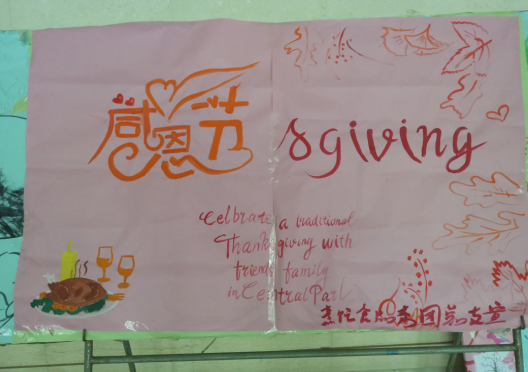 感恩节
sgiving
Celbrate a traditional
Thanksgiving with
friends family
in Central Park